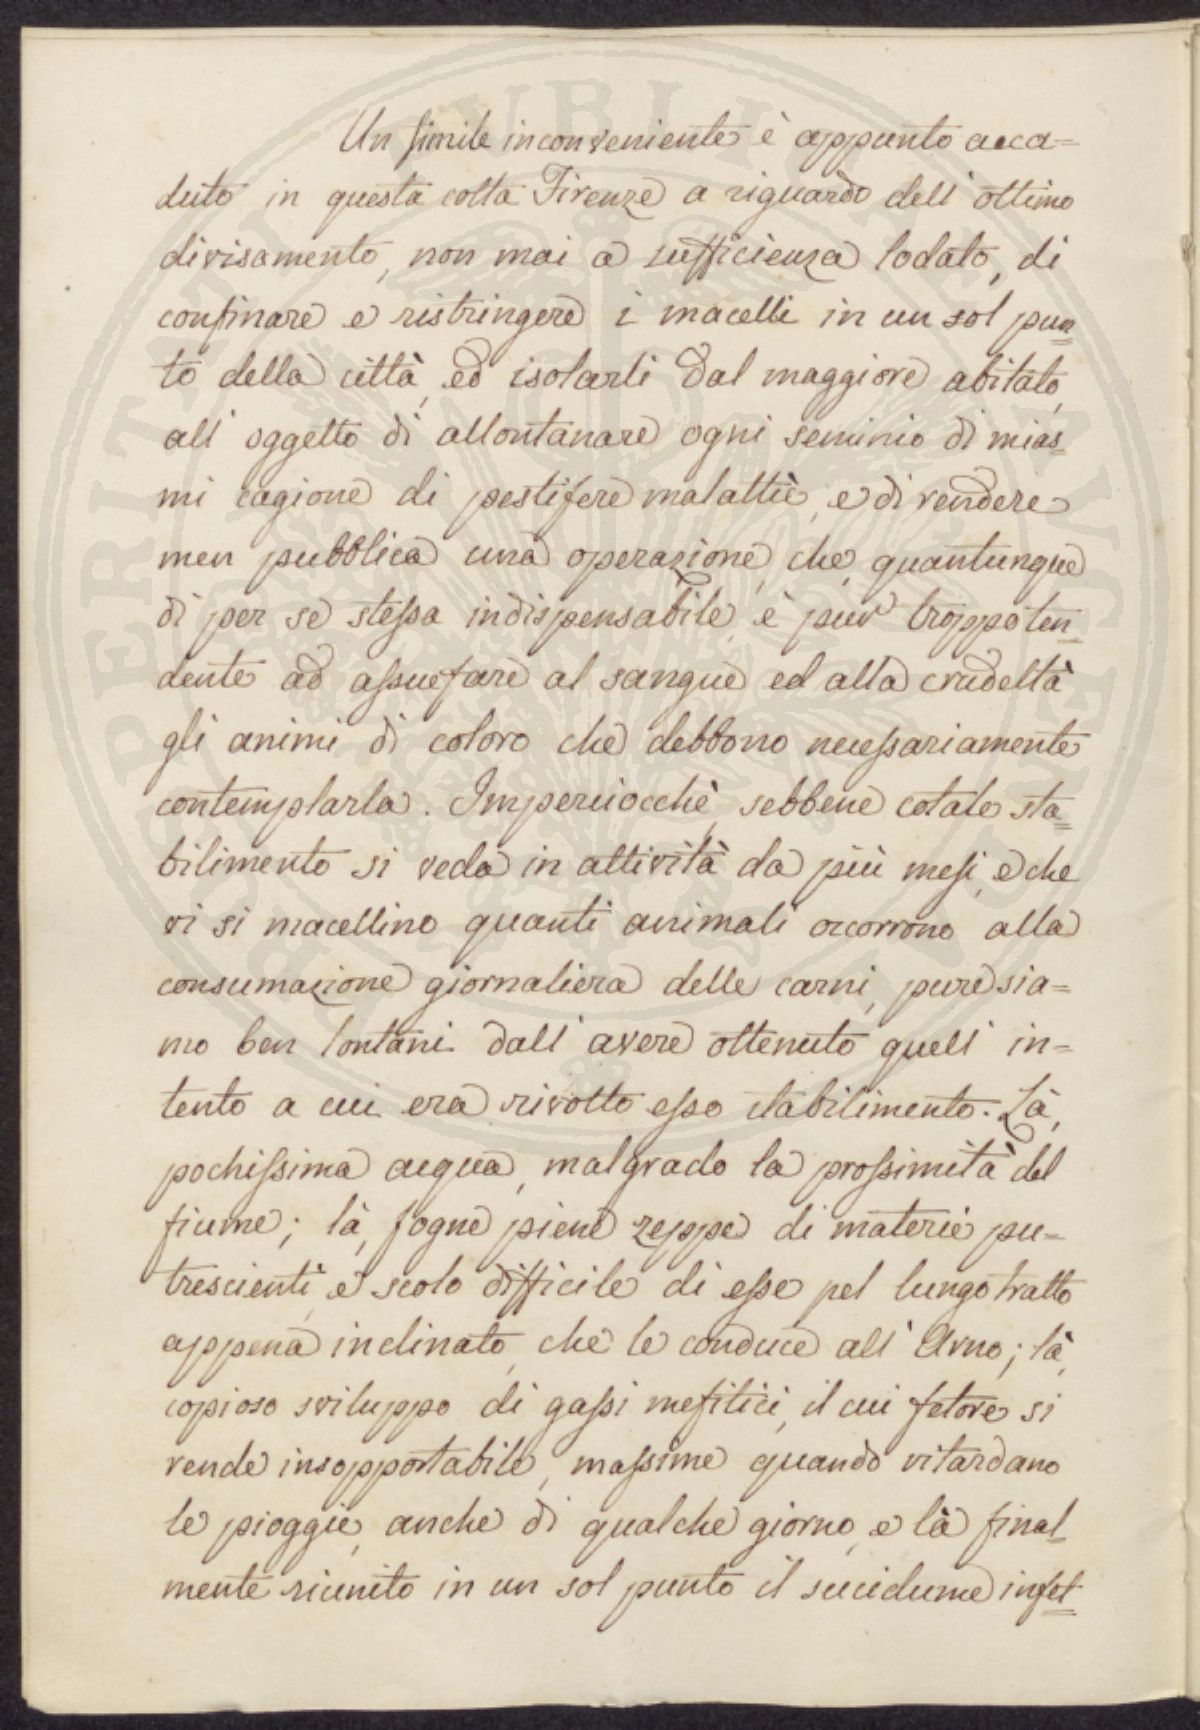 Un simile inconveniente è appunto acca=
duto in questa colta Firenze a riguardo dell' ottimo
divisamento, non mai a sufficienza lodato, di
confinare e ristringere i macelli in un sol pun=
to della città, ed isolarli dal maggiore abitato,
all' oggetto di allontanare ogni seminio di mias=
mi cagione di pestifere malattie, e di rendere
men pubblica una operazione, che, quantunque
di per se stessa indispensabile, è pur troppo ten=
dente ad assuefare al sangue ed alla crudeltà
gli animi di coloro che debbono necessariamente
contemplarla. Imperciocchè, sebbene cotale sta=
bilimento si veda in attività da più mesi, e che
vi si macellino quanti animali occorrono alla
consumazione giornaliera delle carni, pure sia=
mo ben lontani dall' avere ottenuto quell' in=
tento a cui era rivolto esso stabilimento. Là,
pochissima acqua, malgrado la prossimità del
fiume; là, fogne piene zeppe di materie pu=
trescienti, e scolo difficile di esse pel lungo tratto
appena inclinato, che le conduce all' Arno; là,
copioso sviluppo di gassi mefitici, il cui fetore si
rende insopportabile, massime quando ritardano
le pioggie, anche di qualche giorno, e là final=
mente riunito in un sol punto il sucidume infet=
PERITATI PUBLICAE